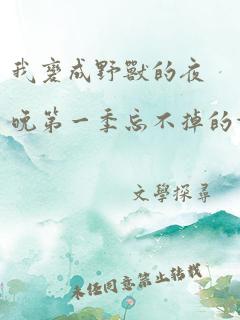 我変成野獸的夜
晚第一季忘不掉的
文學探尋
未经同意禁止转载